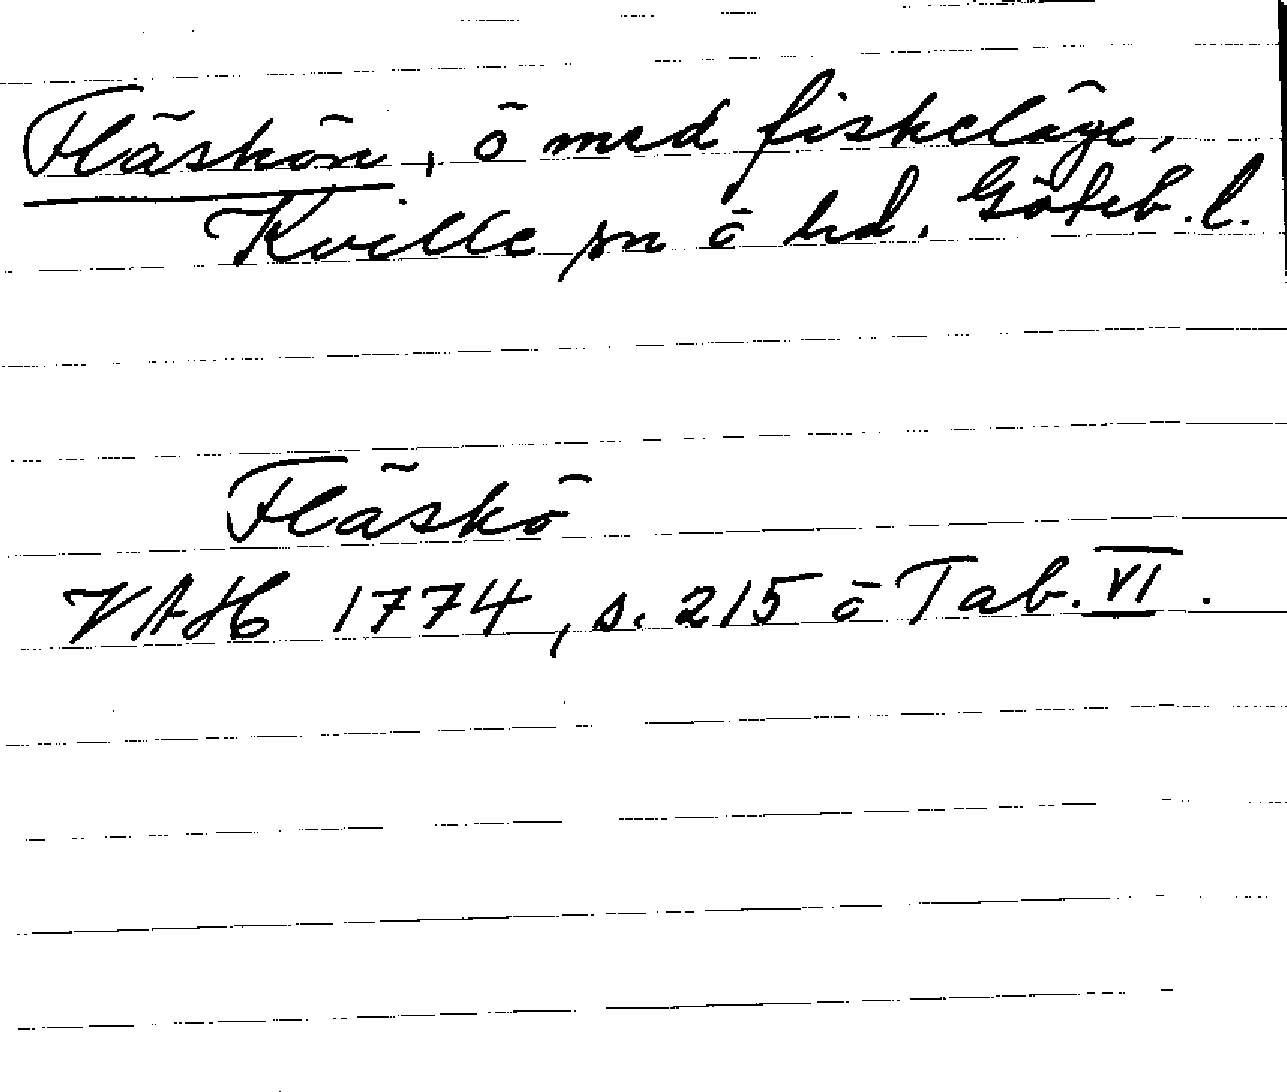 Fläskön, ö med fiskeläge,
Kville sn o hd. Göteb. l.
Fläskö
VAH 1774, s. 215 o Tab. VI.